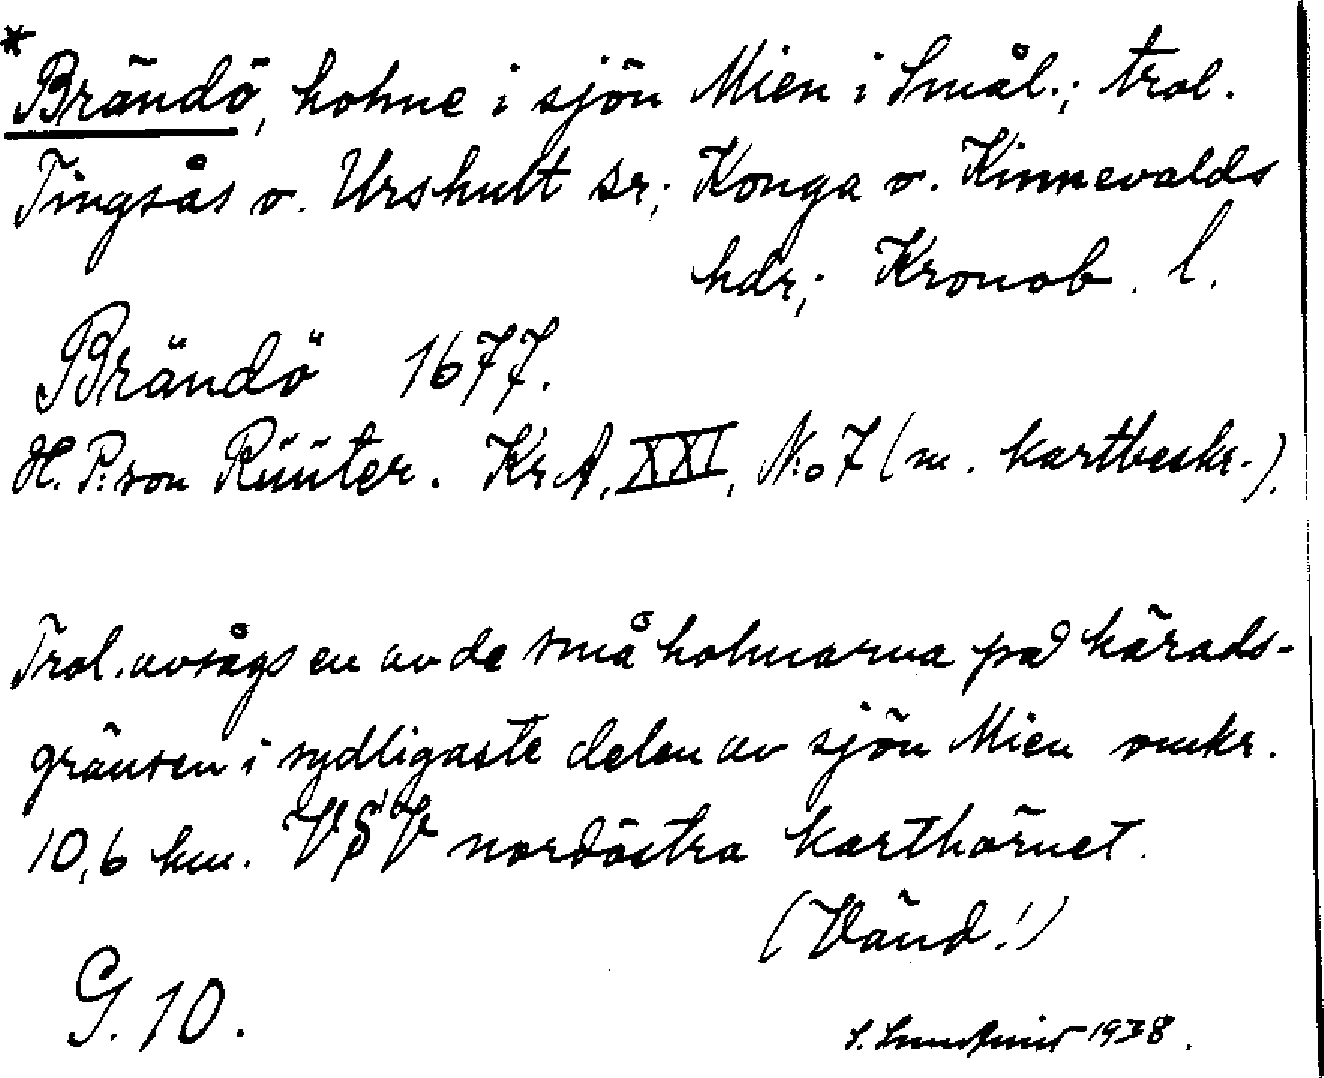 *
Brändö, holme i sjön Mien i Smål.; trol.
Tingsås o. Urshult sr; Konga o. Kinnevalds
hdr; Kronob. l.
Brändö 1677.
H. P:son Rüüter. Kr.A, XXI, N:o 7 (m. kartbeskr.).
Trol. avsågs en av de små holmarna på härads-
gränsen i sydligaste delen av sjön Mien omkr.
10,6 km. VSV nordöstra karthörnet.
(Vänd!)
G. 10.
S. 1938.